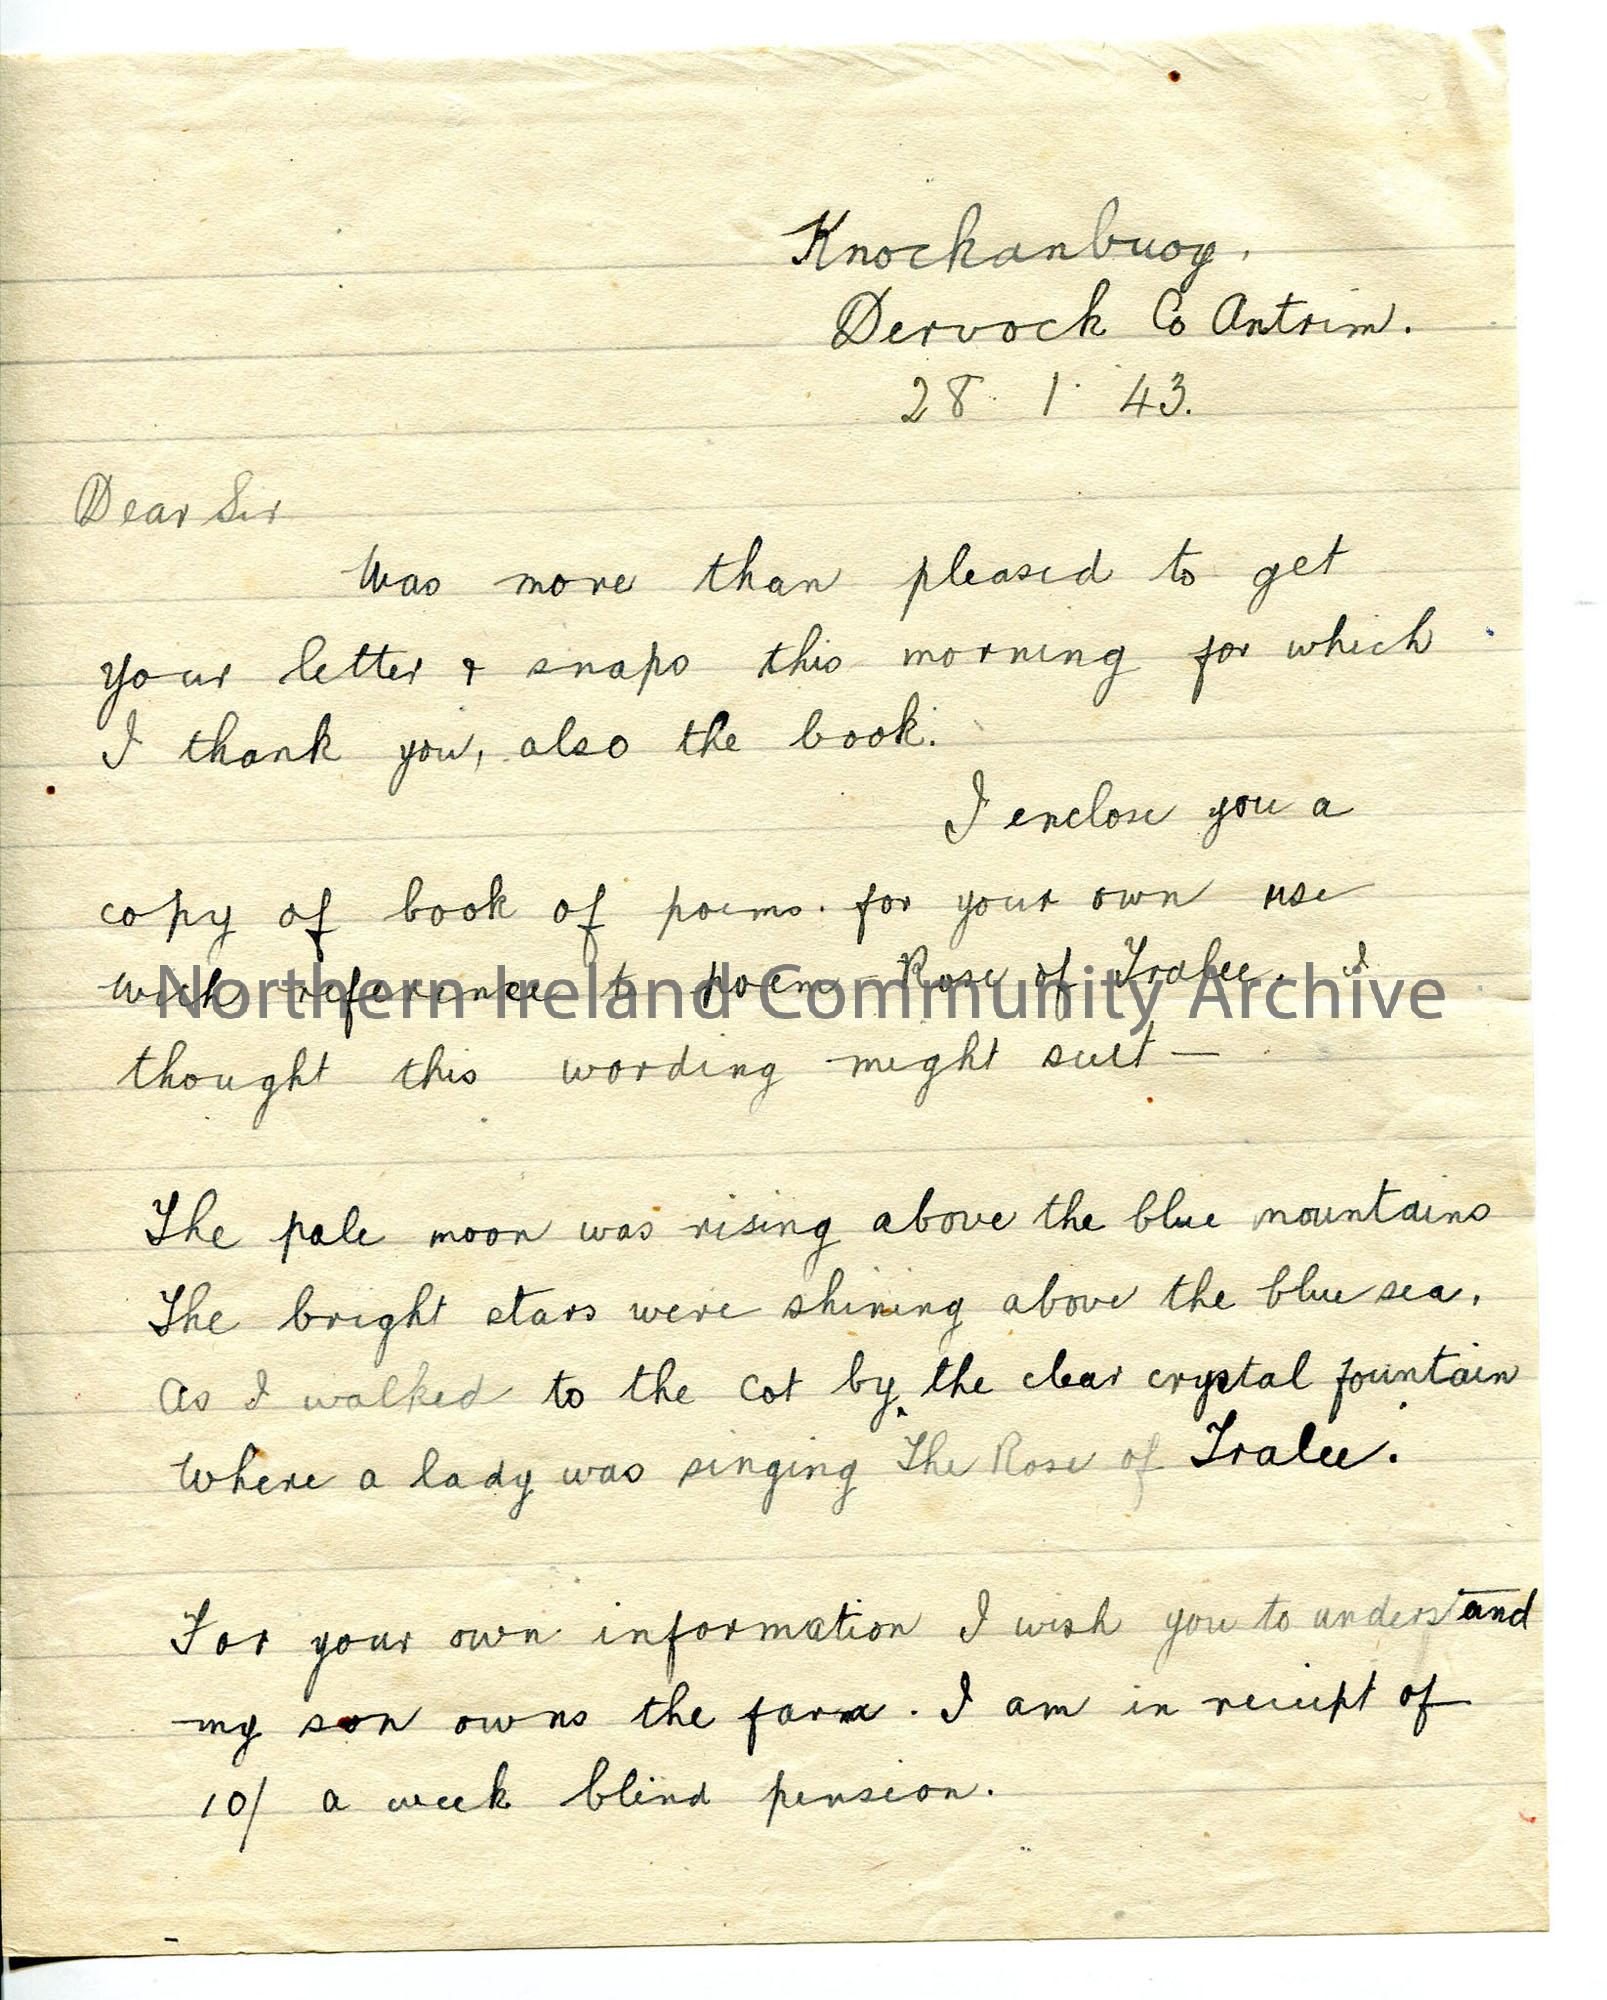 Knockanbuoy.
Dervock Co Antrim.
28. 1. 43.
Dear Sir
Was more than pleased to get
your letter & snaps this morning for which
I thank you, also the book.
I enclose you a
copy of book of poems. for your own use
with reference to poem Rose of Tralee. I
Northern Ireland Community Archive
thought this wording might suit —
The pale moon was rising above the blue mountains
The bright stars were shining above the blue sea.
As I walked to the cot by the clear crystal fountain
Where a lady was singing The Rose of Tralee.
For your own information I wish you to understand
my son owns the farm. I am in reciept of
10/ a week blind pension.